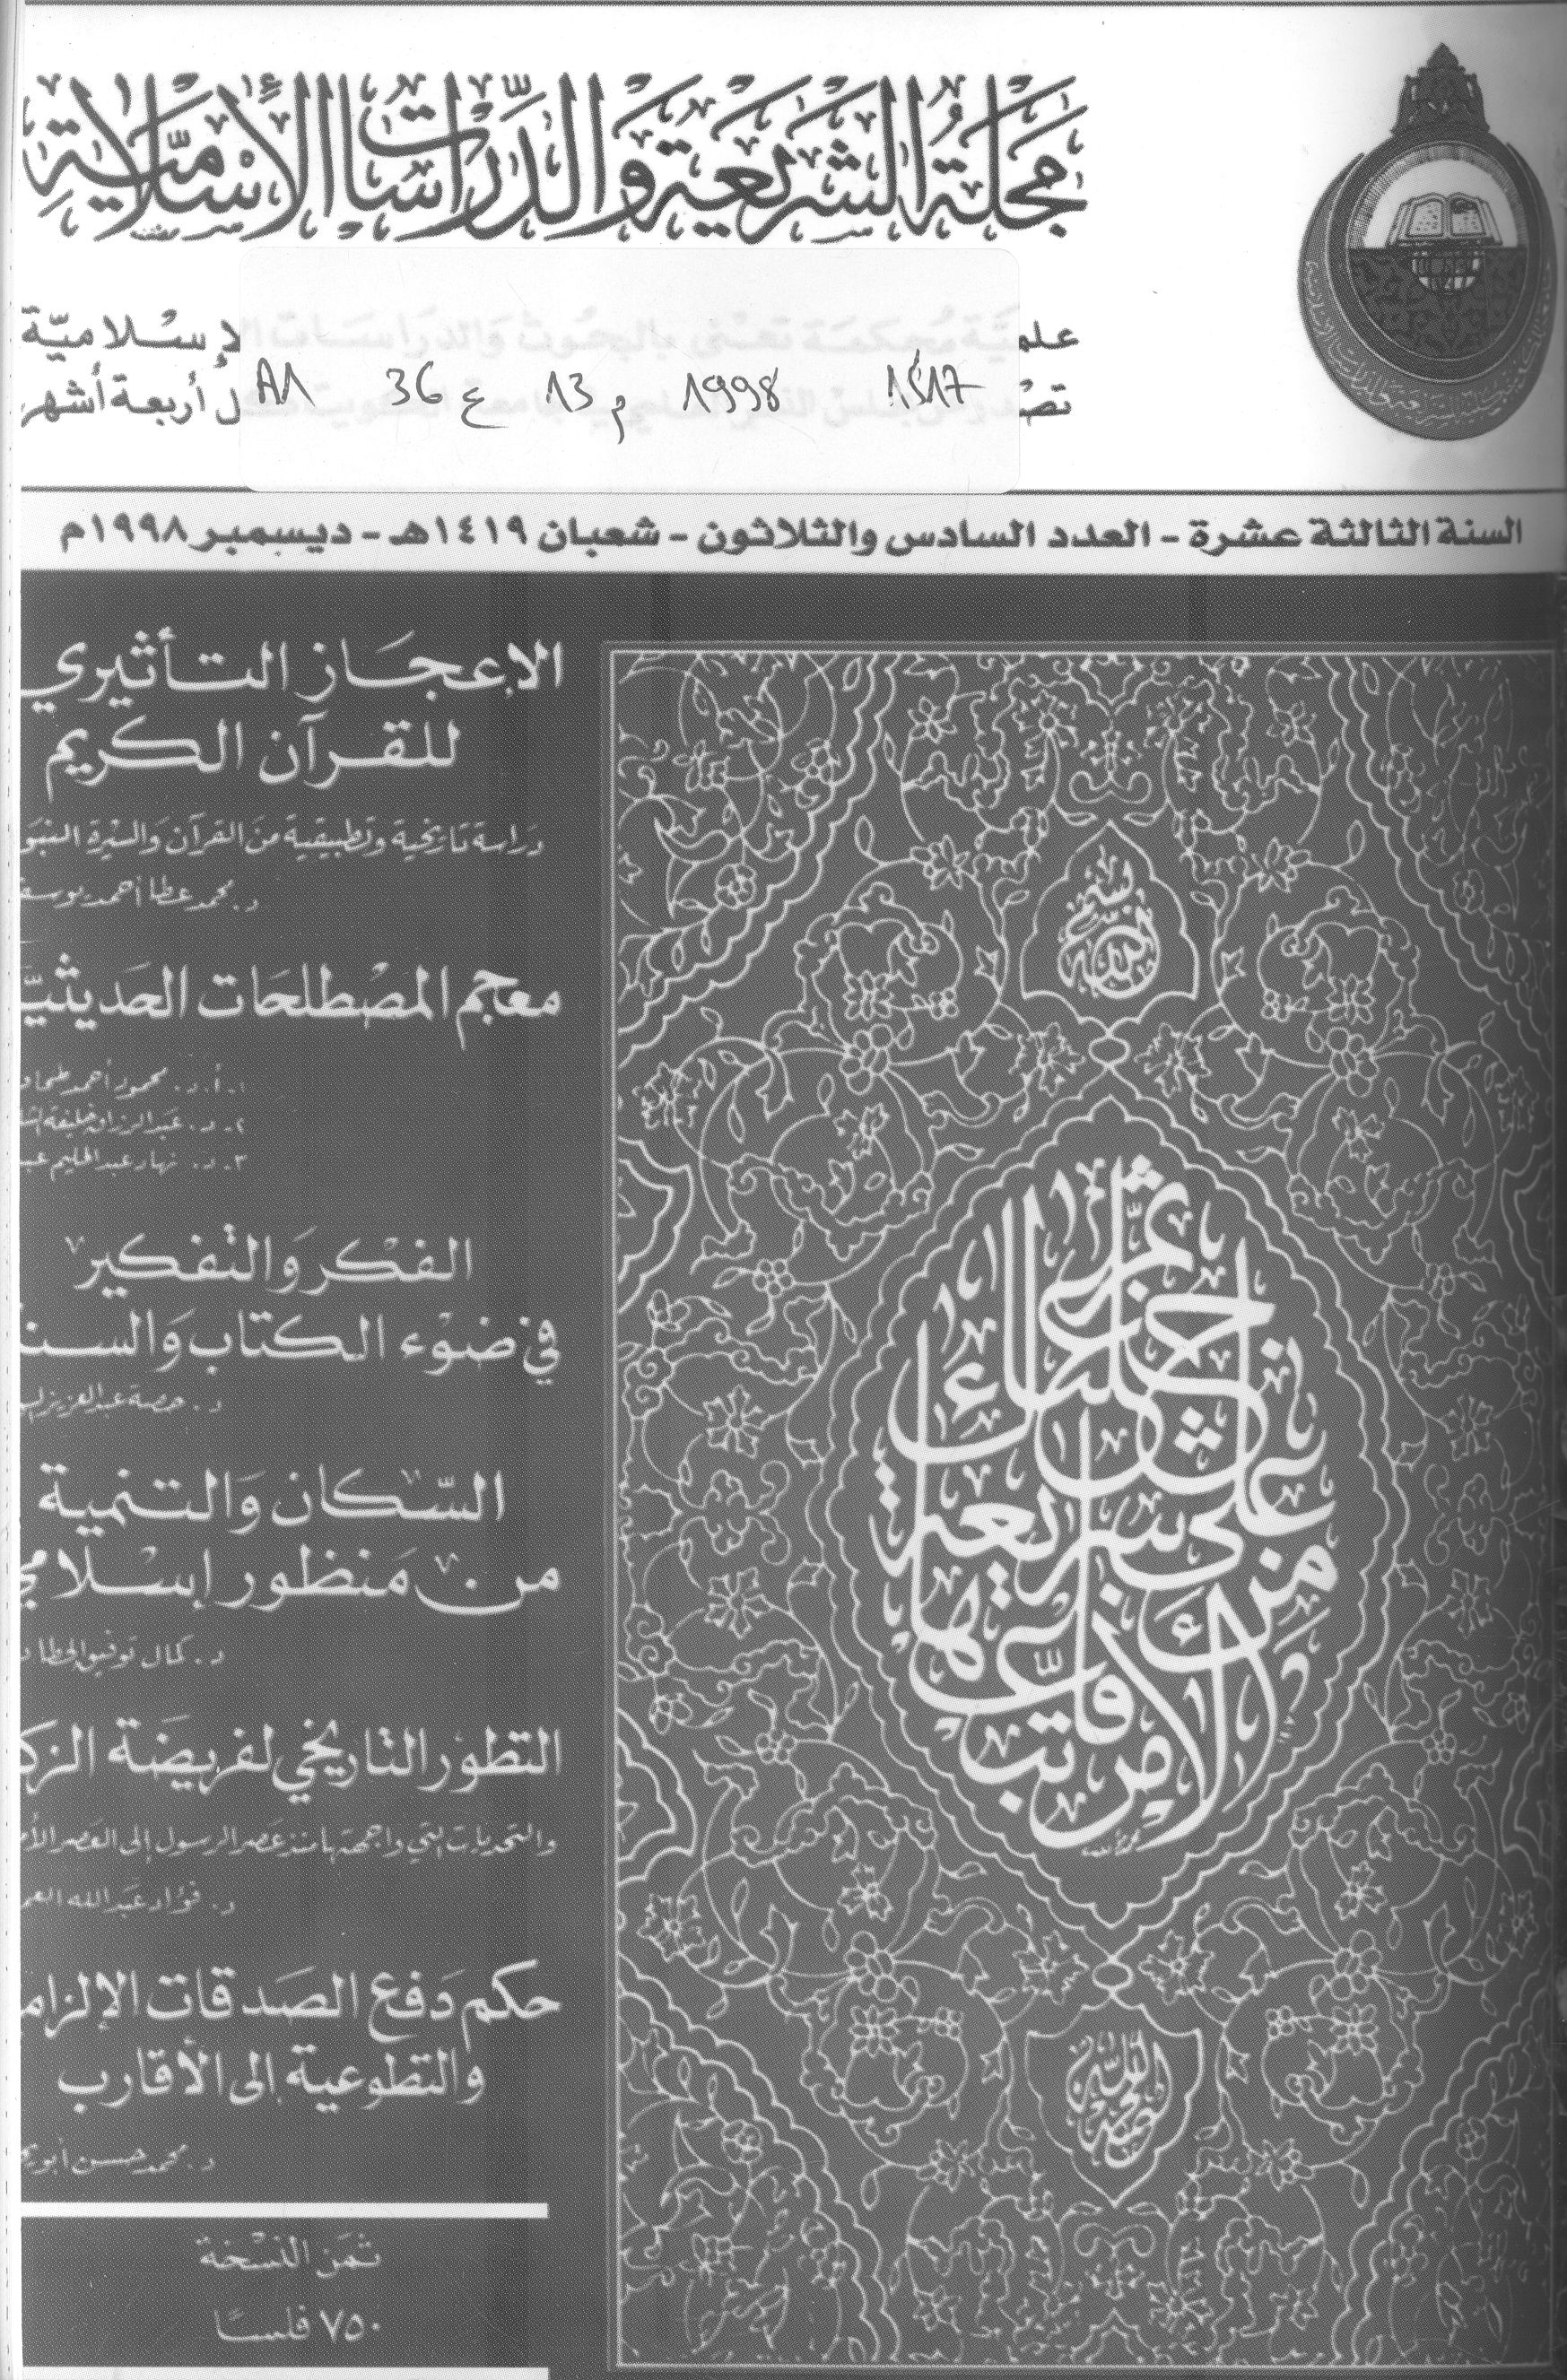 مجلة الشريعة والدراسات الإسلامية
علميّة مُحكمَة تعنى بالبحُوث وَالدرَاسَات الإسْلاميّة
تصْدر عن مجلس النشر العلمي في جامعة الكويت كل أربعة أشهر
A1 36 ع 13 م 1998 1517
السنة الثالثة عشرة - العدد السادس والثلاثون - شعبان ١٤١٩هـ - ديسمبر ١٩٩٨م
الإعجاز التأثيري
للقرآن الكريم
دراسة تاريخية وتطبيقية من القرآن والسيرة
د. محمد عطا أحمد يوسف
معجم المصطلحات الحديثيّة
١- أ.د. محمود أحمد
٢- د. عبد الرزاق خليفة
٣- د. نهاد عبد الحليم
الفكر والتفكير
في ضوء الكتاب والسنة
د. حصة عبد العزيز
السّكان والتنمية
من منظور إسلامي
د. كمال توفيق
التطور التاريخي لفريضة
والتحديات التي واجهتها منذ عصر الرسول إلى العصر
د. فؤاد عبد الله
حكم دفع الصدقات
والتطوعية إلى الأقارب
د. محمد حسن
ثمن النسخة
٧٥٠ فلسًا
بسم الله
ثم جعلناك على شريعة من الأمر فاتبعها